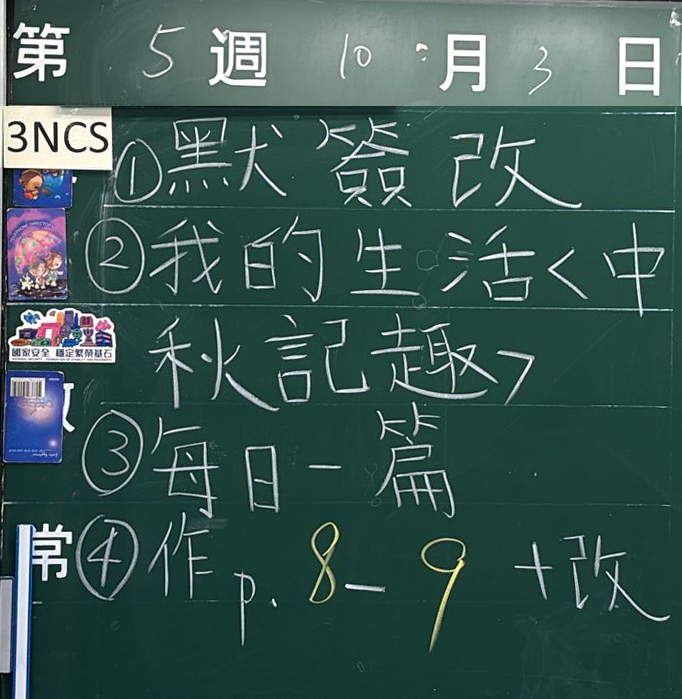 第 5 週 10 月 3 日
3NCS
①默 簽 改
②我的生活<中
秋記趣>
國家安全 穩定繁榮基石
③每日一篇
常④作p. 8-9 +改